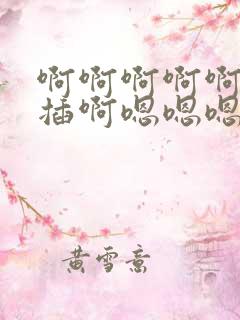 啊啊啊啊啊
插啊嗯嗯嗯
黄雪意